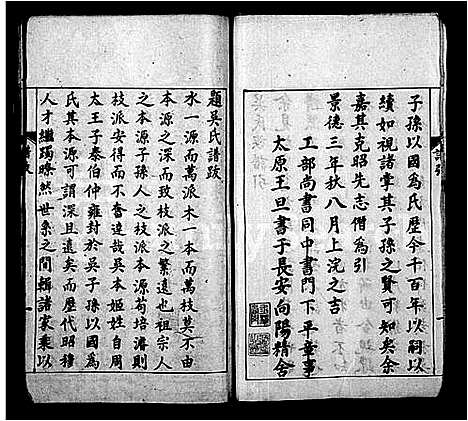 子孫以國為氏歷今千百年以嗣以
續如視諸掌其子孫之賢可知矣余
嘉其克昭先志僭為引
景德三年秋八月上浣之吉
工部尚書同中書門下平章事
太原王旦書于長安向陽精舍
題吳氏譜跋
水一源而萬派木一本而萬枝莫不由
本源之深而致枝派之繁遠也祖宗人
之本源子孫人之枝派本源苟培濬則
枝派安得而不奮達哉吳本姬姓自周
太王子泰伯仲雍封於吳子孫以國為
氏其本源可謂深且遠矣而歷代昭穆
人才繼躅瞭然世系之間輯諸家乘以